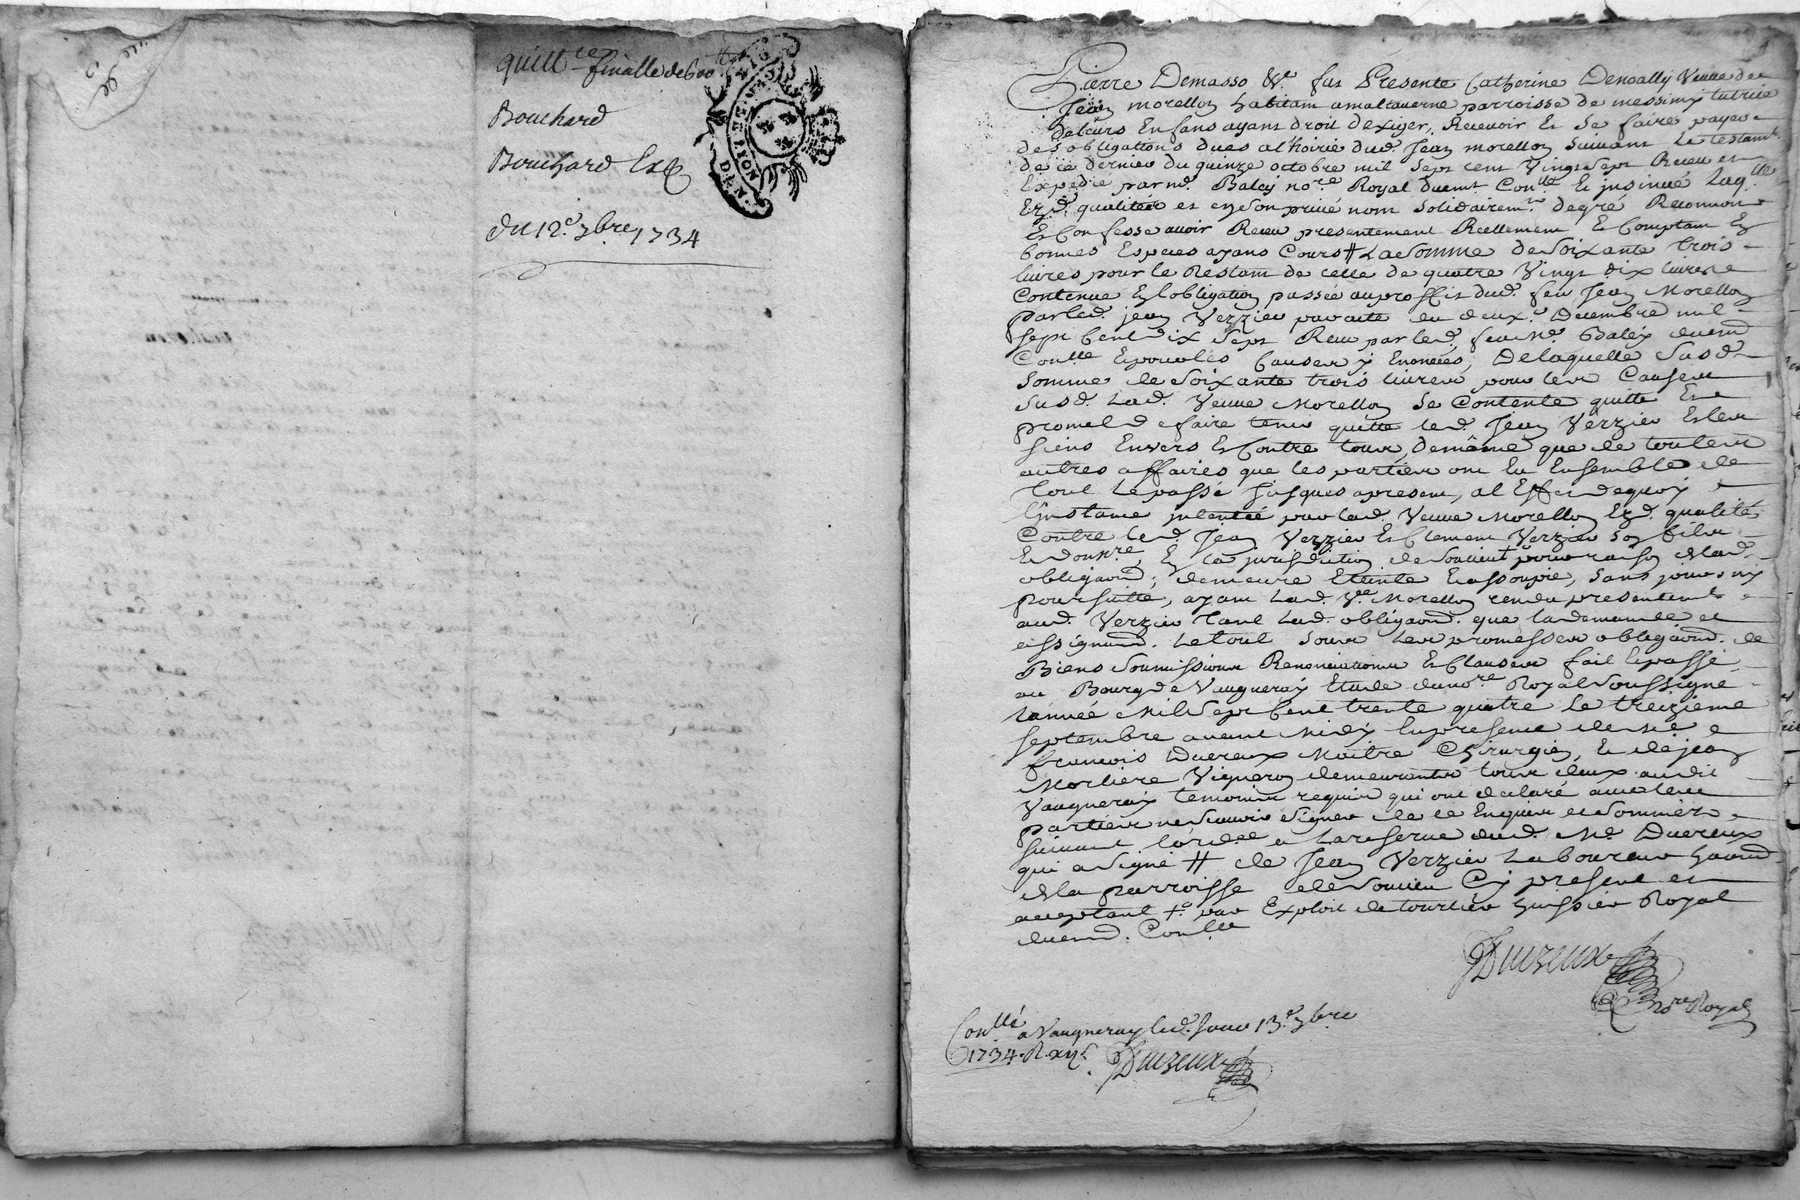 quitt.ce finalle de 600 tt
Bouchard
Bouchard
du 12.e 7bre 1734
GEN. DE LYON
Pierre Demasso &.a fut Presente Catherine Denoally Veuve de
Jean morellon habitant a maltaverne parroisse de messimy tutrice
de leurs Enfans ayant droit d'exiger, Recevoir Et se faire payer
des obligations dues a l'hoirie dud. Jean morellon suivant le testamt.
de ce dernier du quinze octobre mil sept cent Vingt sept Receu et
Expedié par me. Balej no.re Royal duemt Con.llé Et jnsinué Laq.lle
Ezd. qualités et en son privé nom solidairemt. de gré Reconnoit
Et Confesse avoir Receu presentement Reellement Et Comptant En
bonnes Especes ayans Cours # La somme de soixante trois
livres pour le Restant de celle de quatre Vingt dix livres
Contenue En l'obligation passée au proffit dud. feu Jean Morellon
par led. jean Verzier pardevant du deux.e Decembre mil
sept Cent dix sept Receu par led. feu Me. Balej duemt
Con.llé Epour les Causes y Enoncées, De laquelle susd.
somme de soixante trois livres pour les Causes
susd. Lad. Veuve Morellon se Contente quitte Et
promet de faire tenir quitte led. Jean Verzier Et les
siens Envers Et Contre tous, de même que de toutes
autres affaires que les parties ont Eu Ensemble de
tout Le passé jusques a present, al Effet de quoy
L'jnstance jntentée par lad. Veuve Morellon Ezd. qualité
Contre led. Jean Verzier Et Clement Verzier son fils
En la jurisdiction de Soucieu pour raison de lad.
obligaon., demeure Eteinte Et assoupie, sans
poursuitte, ayant Lad. V.ve Morellon rendu presentemt.
aud. Verzier tant Lad. obligaon. que la demande et
assignaon. Le tout sous Les promesses obligaons. de
Biens soumissions Renonciations Et Clauses fait Et passé
au Bourg de Vaugneray Etude du no.re Royal soussigné
L'année Mil sept Cent trente quatre le treizieme
septembre avant Midy En presence de Me.
françois Duereux Maître Chirurgien, Et de jean
Morliere Vigneron demeurants tous deux audit
Vaugneray temoins requis qui ont declaré avec les
parties ne sçavoir signer de ce Enquis et sommés
suivant l'ord.ce a La reserve dud. Me. Duereux
qui a signé # de Jean Verzier Laboureur habt.
de la parroisse de Soucieu Cy present et
acceptant +.e par Exploit de tourtier huissier Royal
duemt. Con.llé
Duereux
no.re Royal
Con.llé a Vaugneray led. jour 13.e 7bre
1734. R xij s.
Duereux